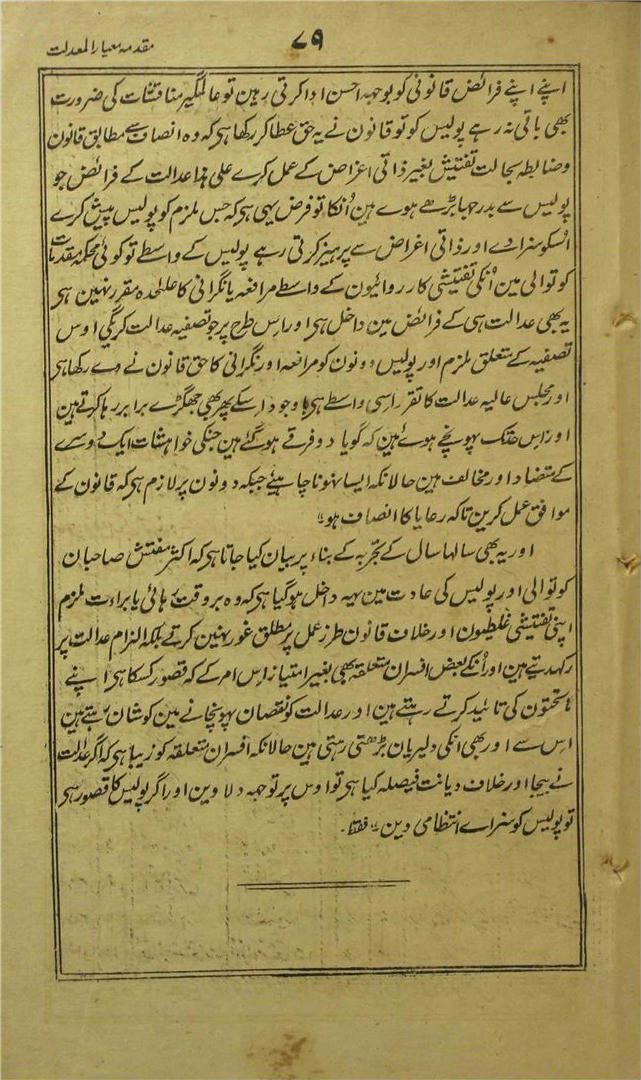 مقدمہ معیار المعدلت
۷۹
اپنے اپنے فرائض قانونی کو بوجہہ احسن ادا کرتی رہین تو عالمگیر مناقشات کی ضرورت
بھی باقی نہ رہے پولیس کو تو قانون نے یہ حق عطا کر رکھا ہی کہ وہ انصاف سے مطابق قانون
وضابطہ بحالت تفتیش بغیر ذاتی اغراض کے عمل کرے علی ہذا عدالت کے فرائض جو
پولیس سے بدرجہا بڑھے ہوے ہین اُنکا تو فرض یہی ہی کہ جس ملزم کو پولیس پیش کرے
اُسکو سزا دے اور ذاتی اغراض سے پرہیز کرتی رہے پولیس کے واسطے تو کوئی محکمہ مقدمات
کوتوالی مین اُنکی تفتیشی کارروائیون کے واسطے مرافعہ یا نگرانی کا علٰحدہ مقرر نہین ہی
یہ بھی عدالت ہی کے فرائض مین داخل ہی اور اس طرح پر جو تصفیہ عدالت کریگی اوس
تصفیہ کے متعلق ملزم اور پولیس دونون کو مرافعہ اور نگرانی کا حق قانون نے دے رکھا ہی
اور مجلس عالیہ عدالت کا تقرر اسی واسطے ہی باوجود اسکے پھر بھی جھگڑے برابر رہا کرتے ہین
اور اس حد تک پہونچے ہوئے ہین کہ گویا دو فرقے ہو گئے ہین جنکی خواہشات ایک دوسرے
کے متضاد اور مخالف ہین حالانکہ ایسا نہونا چاہیئے جبکہ دونون پر لازم ہی کہ قانون کے
موافق عمل کرین تاکہ رعایا کا انصاف ہو ؎
اور یہ بھی سالہا سال کے تجربہ کے بناء پر بیان کیا جاتا ہی کہ اکثر مفتش صاحبان
کوتوالی اور پولیس کی عادت مین یہہ داخل ہو گیا ہی کہ وہ بر وقت رہائی یا براءت ملزم
اپنی تفتیشی غلطیون اور خلاف قانون طرز عمل پر مطلق غور نہین کرتے بلکہ الزام عدالت پر
رکھدیتے ہین اور اُنکے بعض افسران متعلقہ بھی بغیر امتیاز اس امر کے کہ قصور کسکا ہی اپنے
ماتحتون کی تائید کرتے رہتے ہین اور عدالت کو نقصان پہونچانے مین کوشان رہتے ہین
اس سے اور بھی انکی دلیریان بڑھتی رہتی ہین حالانکہ افسران متعلقہ کو زیبا ہی کہ اگر عدالت
نے بیجا اور خلاف دیانت فیصلہ کیا ہی تو اوس پر توجہہ دلاوین اور اگر پولیس کا قصور ہی
تو پولیس کو سزاے انتظامی دین ؎ فقط۔